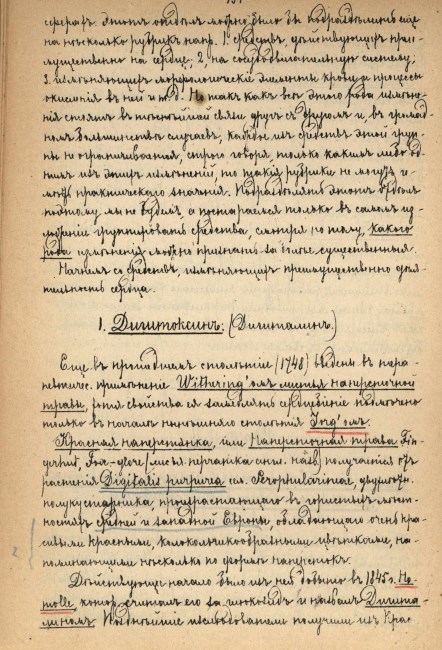 сферахъ. Этотъ отдѣлъ можно было бы подраздѣлить еще
на нѣсколько рубрикъ напр. 1, средствъ, дѣйствующихъ преи-
мущественно на сердце, 2, на сосудодвигательную систему,
3, измѣняющихъ морфологическіе элементы крови и процессы
окисленія въ ней и т. д. Но такъ какъ все этого рода измѣне-
нія стоятъ въ тѣснѣйшей связи другъ съ другомъ и, въ громад-
номъ большинствѣ случаевъ, каждое изъ средствъ этой груп-
пы не ограничивается, строго говоря, только какимъ либо од-
нимъ изъ этихъ измѣненій, то такія рубрики не могутъ и-
мѣть практическаго значенія. Подраздѣлять этотъ отдѣлъ
поэтому мы не будемъ, а постараемся только въ самомъ из-
ложеніи группировать средства, смотря по тому, какого
рода измѣненія можно признать за болѣе существенныя.
Начнемъ со средствъ, измѣняющихъ преимущественно дѣя-
тельность сердца.
1. Дигитоксинъ. (Дигиталинъ.)
Еще въ прошедшемъ столѣтіи (1748) введены въ тера-
певтич. примѣненіе Withering'омъ листья наперсточной
травы, хотя свойства ея замедлять сердцебіеніе подмѣчено
только въ началѣ нынѣшняго столѣтія
Красная наперстянка, или Наперсточная трава Fin-
gerhut, Fox-glove (лисья перчатка англ. назв.) получается отъ
растенія Digitalis purpurea сем. Scrophularineae, двулѣтн.
полукустарника, произрастающаго въ гористыхъ мѣст-
ностяхъ средней и западной Европы, обладающаго очень кра-
сивыми красными, колокольчикообразными цвѣтками, на-
поминающими нѣсколько по формѣ наперстокъ.
Дѣйствующее начало было изъ нея добыто въ 1845 г. Ho-
molle, котор. считалъ его за глюкозидъ и назвалъ Дигита-
линомъ. Позднѣйшіе изслѣдователи получили изъ Крас